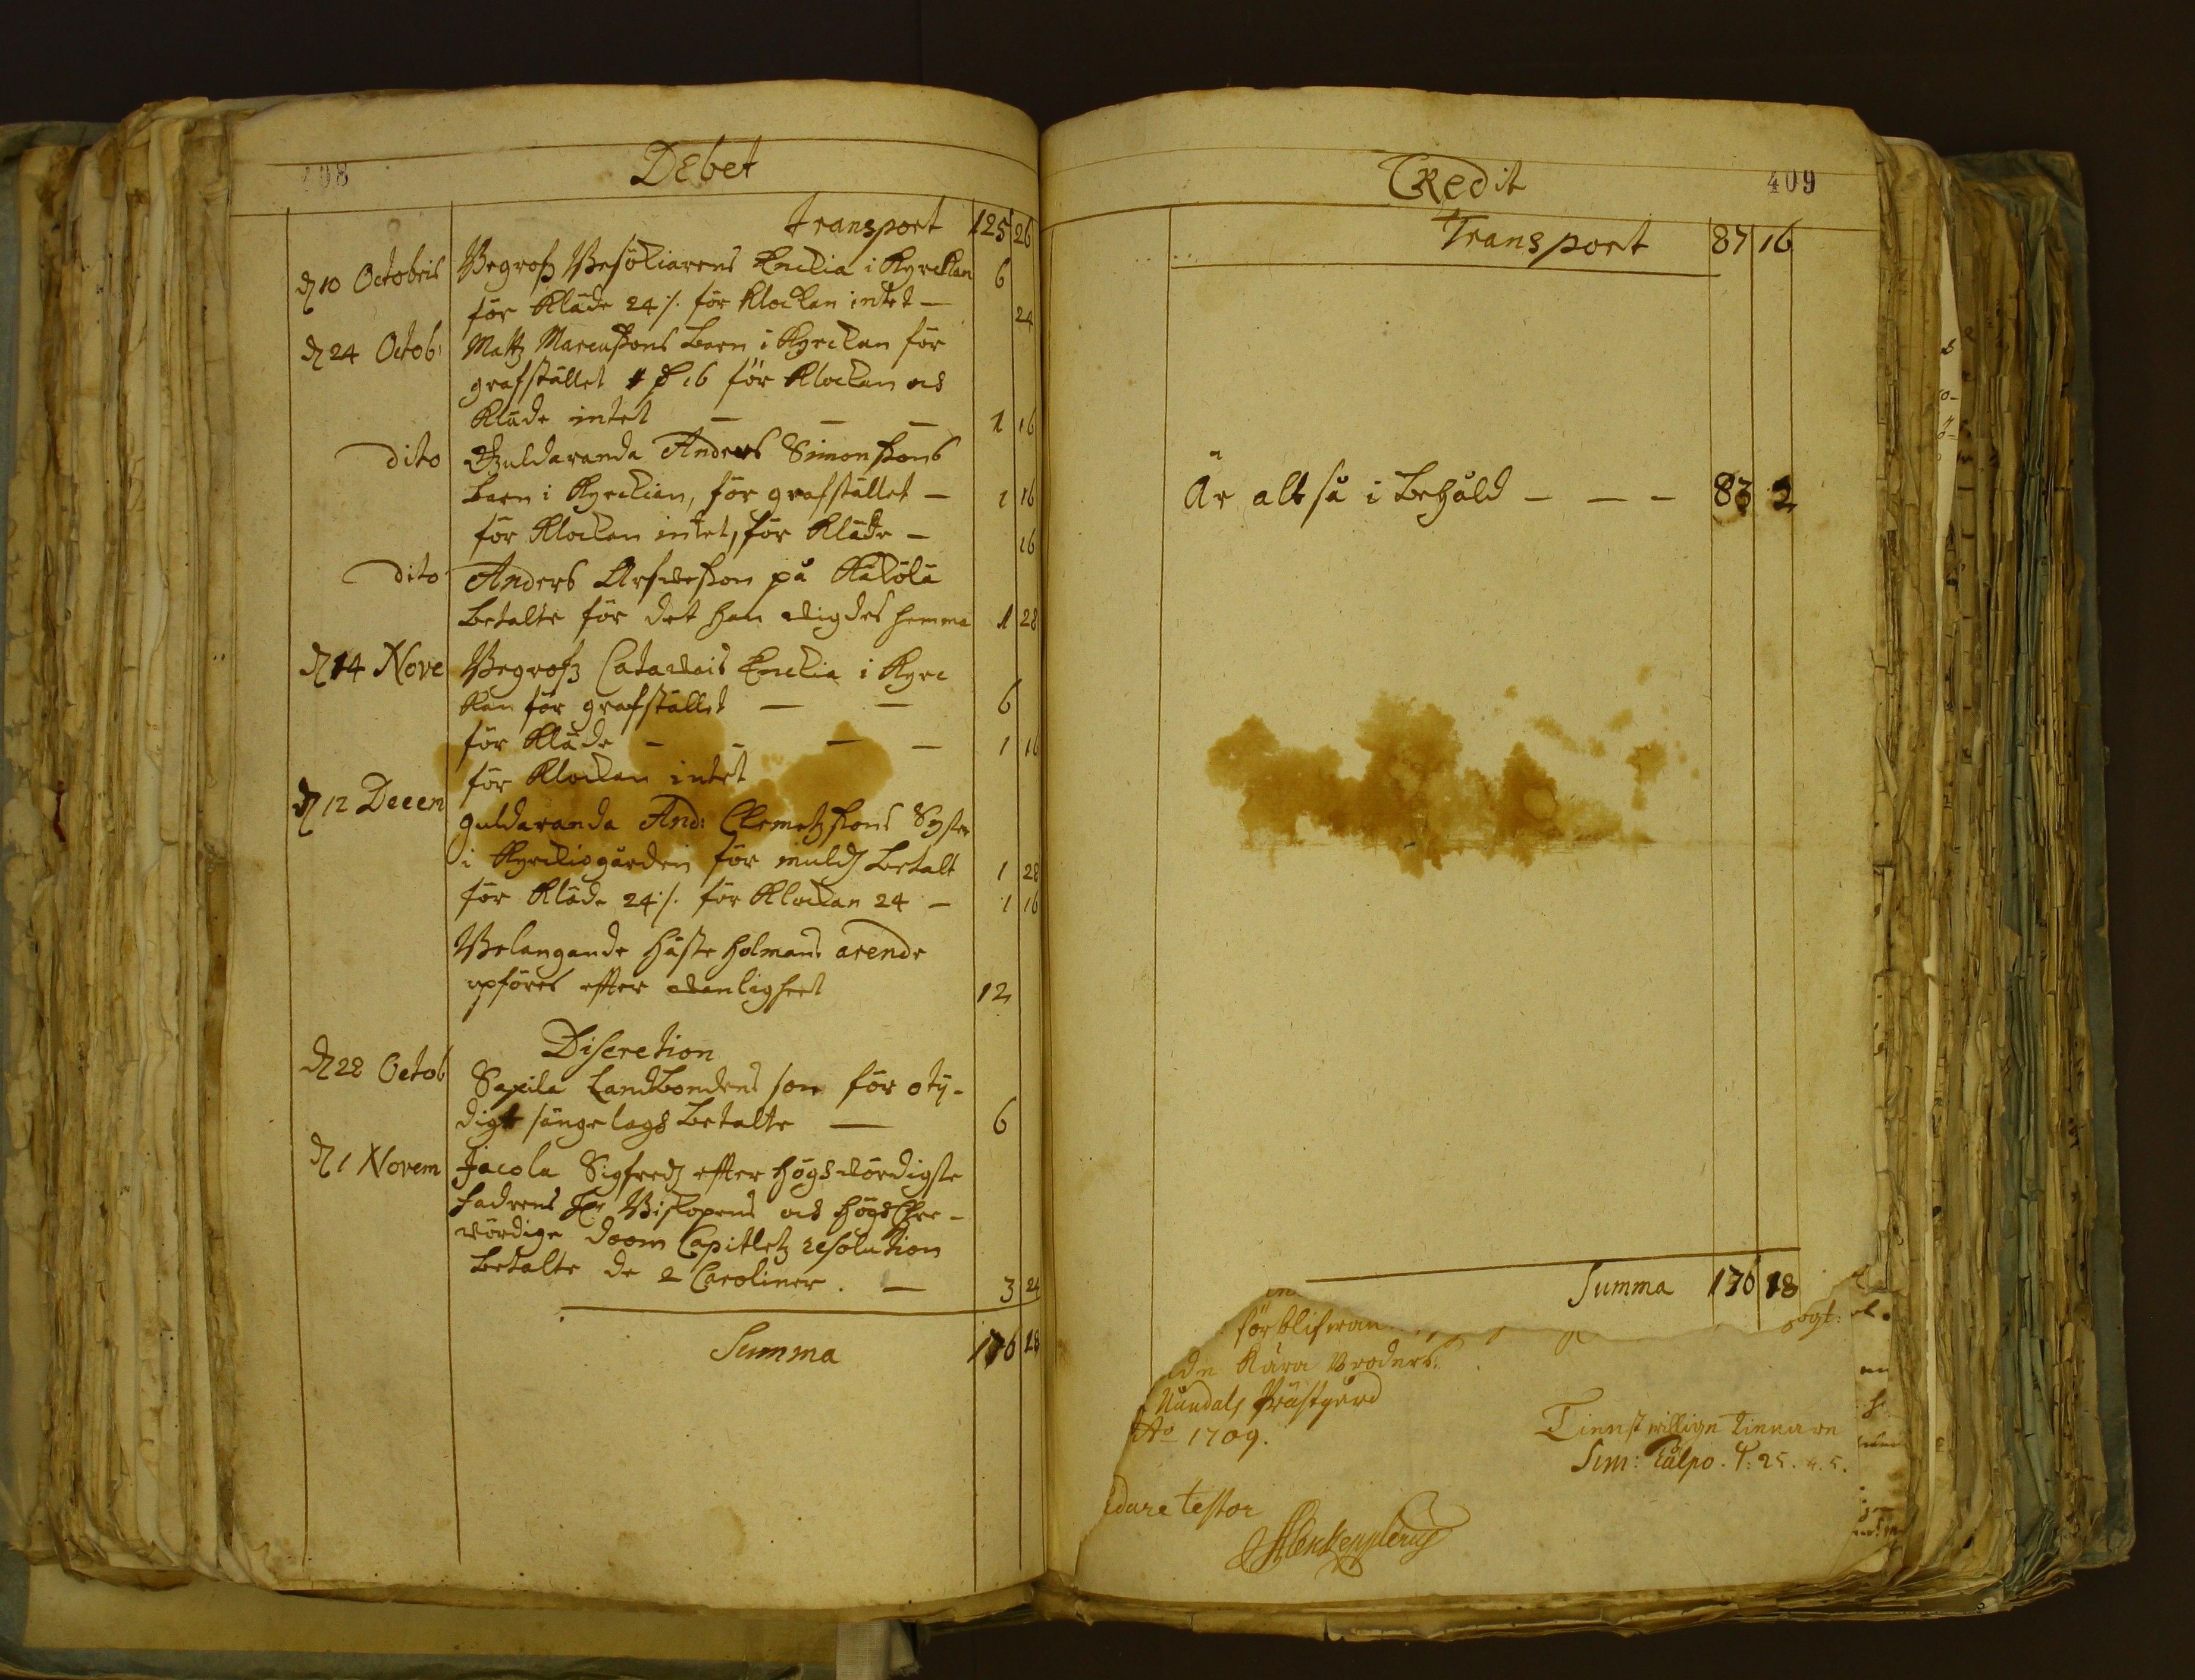 408
DEbet
transport 125 26
d 10 Octobris Begrofz Besökiarens Enckia i Kyrckan 6
för Kläde 24 ⁒ för Klockan intet — 24
d 24 Octob: Mattz Marcußons barn i Kyrckan för
grafstället 16 för Klockan och
Kläde intet — — — 1 16
dito Guldaranda Anders Simonßons
barn i Kyrckian, för grafstället — 1 16
för Klockan intet, för Kläde — 16
dito Anders Arfweßon på
betalte för det han wigdes hemma 1 28
d 14 Nove Begrofz Enckia i Kyrc
kan för grafstället — — 6
för Kläde — — — — 1 16
för Klockan intet
d 12 Decem guldaranda And: Clemetzßons Syster
i Kyrckiogården för muld betalt 1 28
för Kläde 24 ⁒ för Klockan 24 — 1 16
Belangande häste holmans arende
upföres effter wanligheet 12
Discretion
d 28 Octob Sapila Landbondens son för oty-
digt sängelags betalte — 6
d 1 Novem Jacola Sigfredz effter högwördigste
fadrens Hr Biskopens och högEhre-
wördige doom Capitletz resolution
betalte de 2 Caroliner. — 3 24
Summa 176 18
CRedit
409
Transport 87 16
Är altså i behåld — — — 83 2
Summa 170 18
för blifwan
de Kära Broders
Nåndals Prästgård
Ao 1709.
Tienstwillige tienare
Sim: Pålpo.
testor